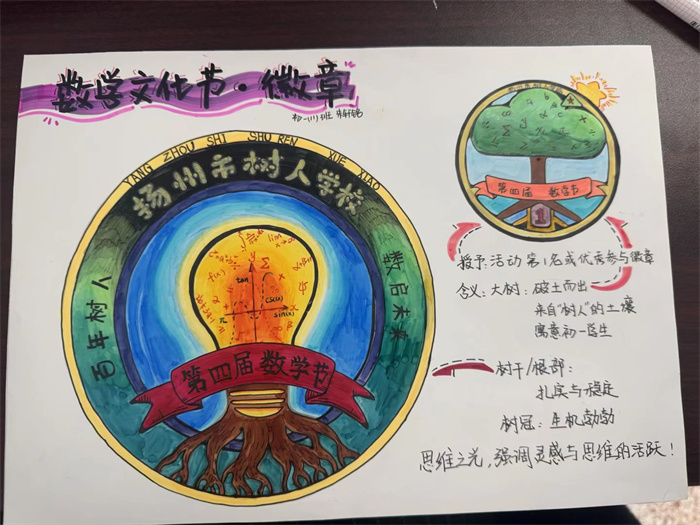 数学文化节·徽章
初一(1)班
YANG ZHOU SHI SHU REN XUE XIAO
扬州市树人学校
百年树人
数启未来
tan
csc(x)
sin(x)
lim
第四届数学节
第四届 数学节
1
授予:活动第1名或优秀参与徽章
含义:大树:破土而出
来自"树人"的土壤
寓意初一莅生
树干/根部:
扎实与稳定
树冠:生机勃勃
思维之光,强调灵感与思维的活跃!